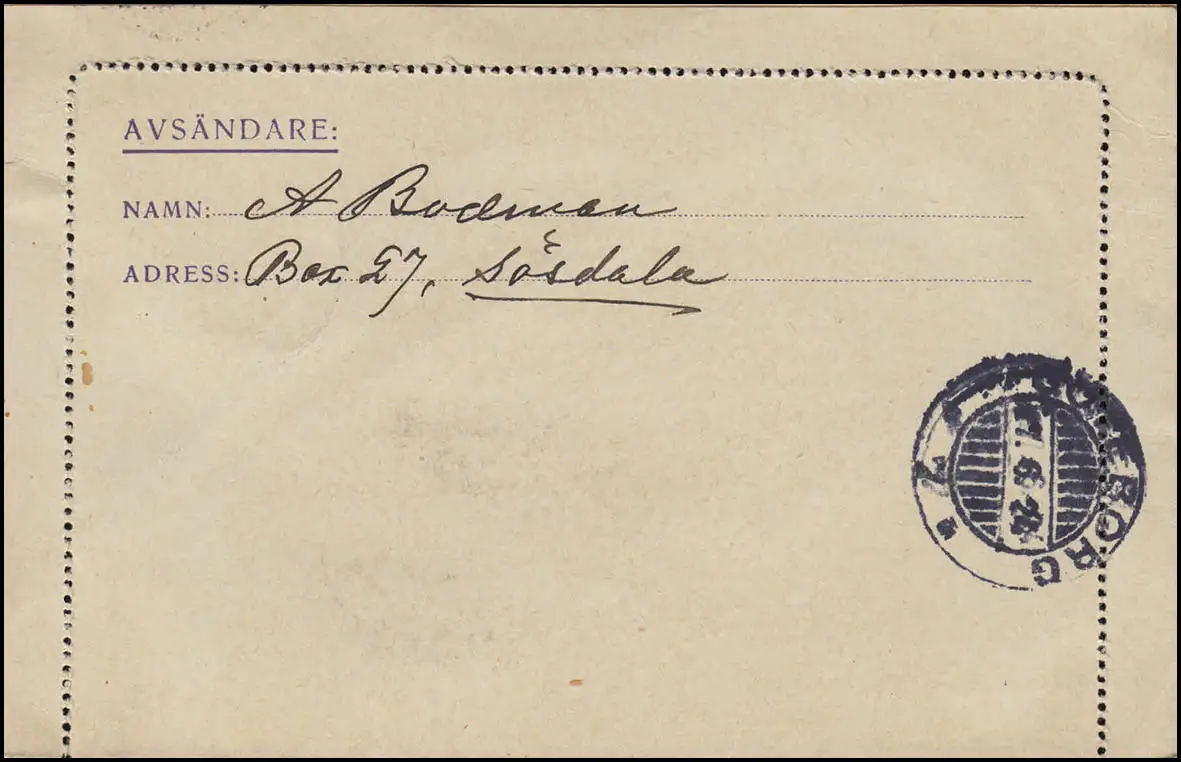 AVSÄNDARE:
NAMN: A Bodman
ADRESS: Box 27, Sösdala
GÖTEBORG
7.6.24